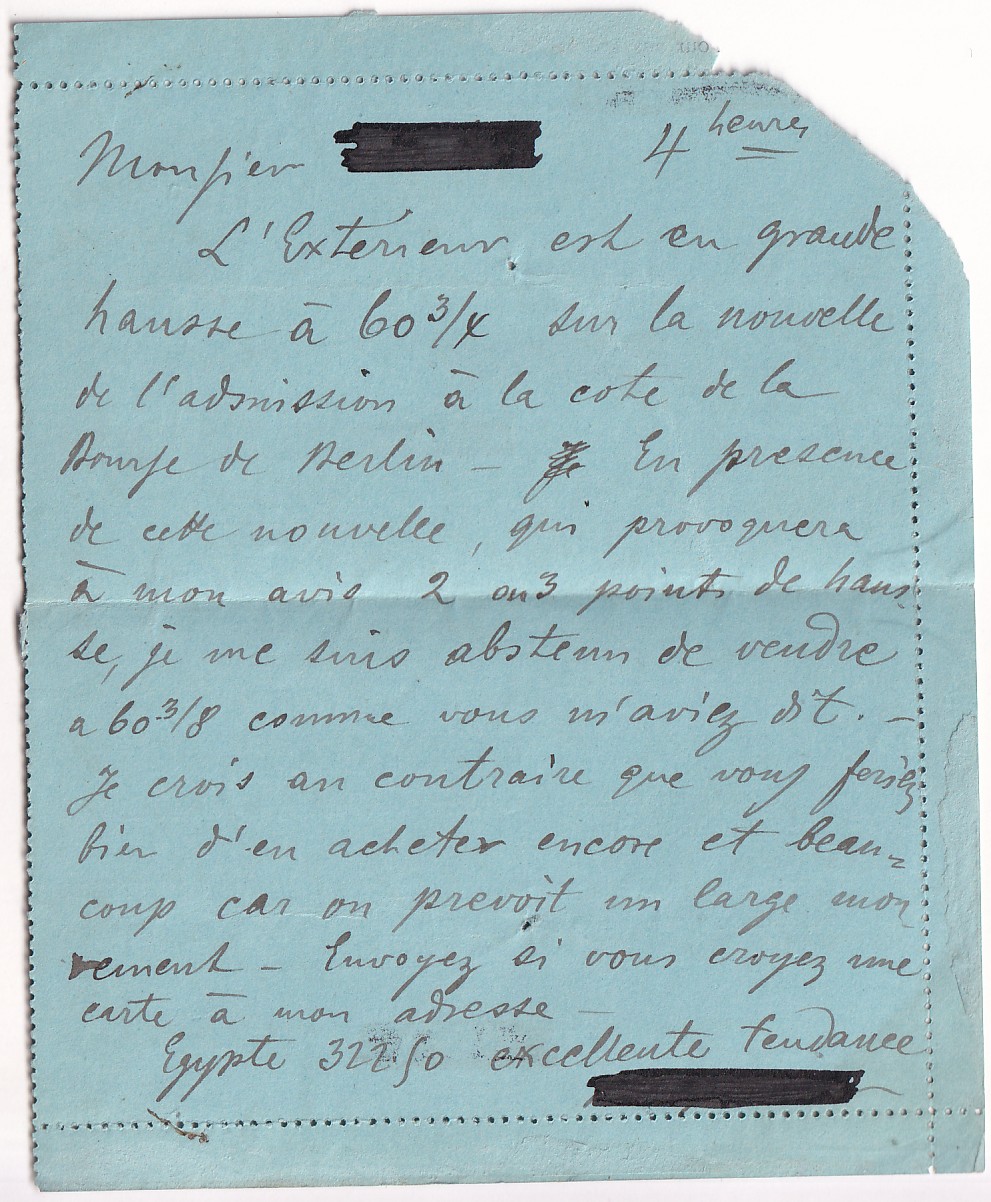 4 heures
Monsieur
L'Exterieur est en grande
hausse à 60 3/4 sur la nouvelle
de l'admission à la cote de la
Bourse de Berlin - En presence
de cette nouvelle, qui provoquera
à mon avis 2 ou 3 points de haus-
se, je me suis abstenu de vendre
a 60 3/8 comme vous m'aviez dit. -
Je crois au contraire que vous feriez
bien d'en acheter encore et beau-
coup car on prevoit un large mou-
vement - Envoyez si vous croyez une
carte à mon adresse -
Egypte 322 50 excellente tendance